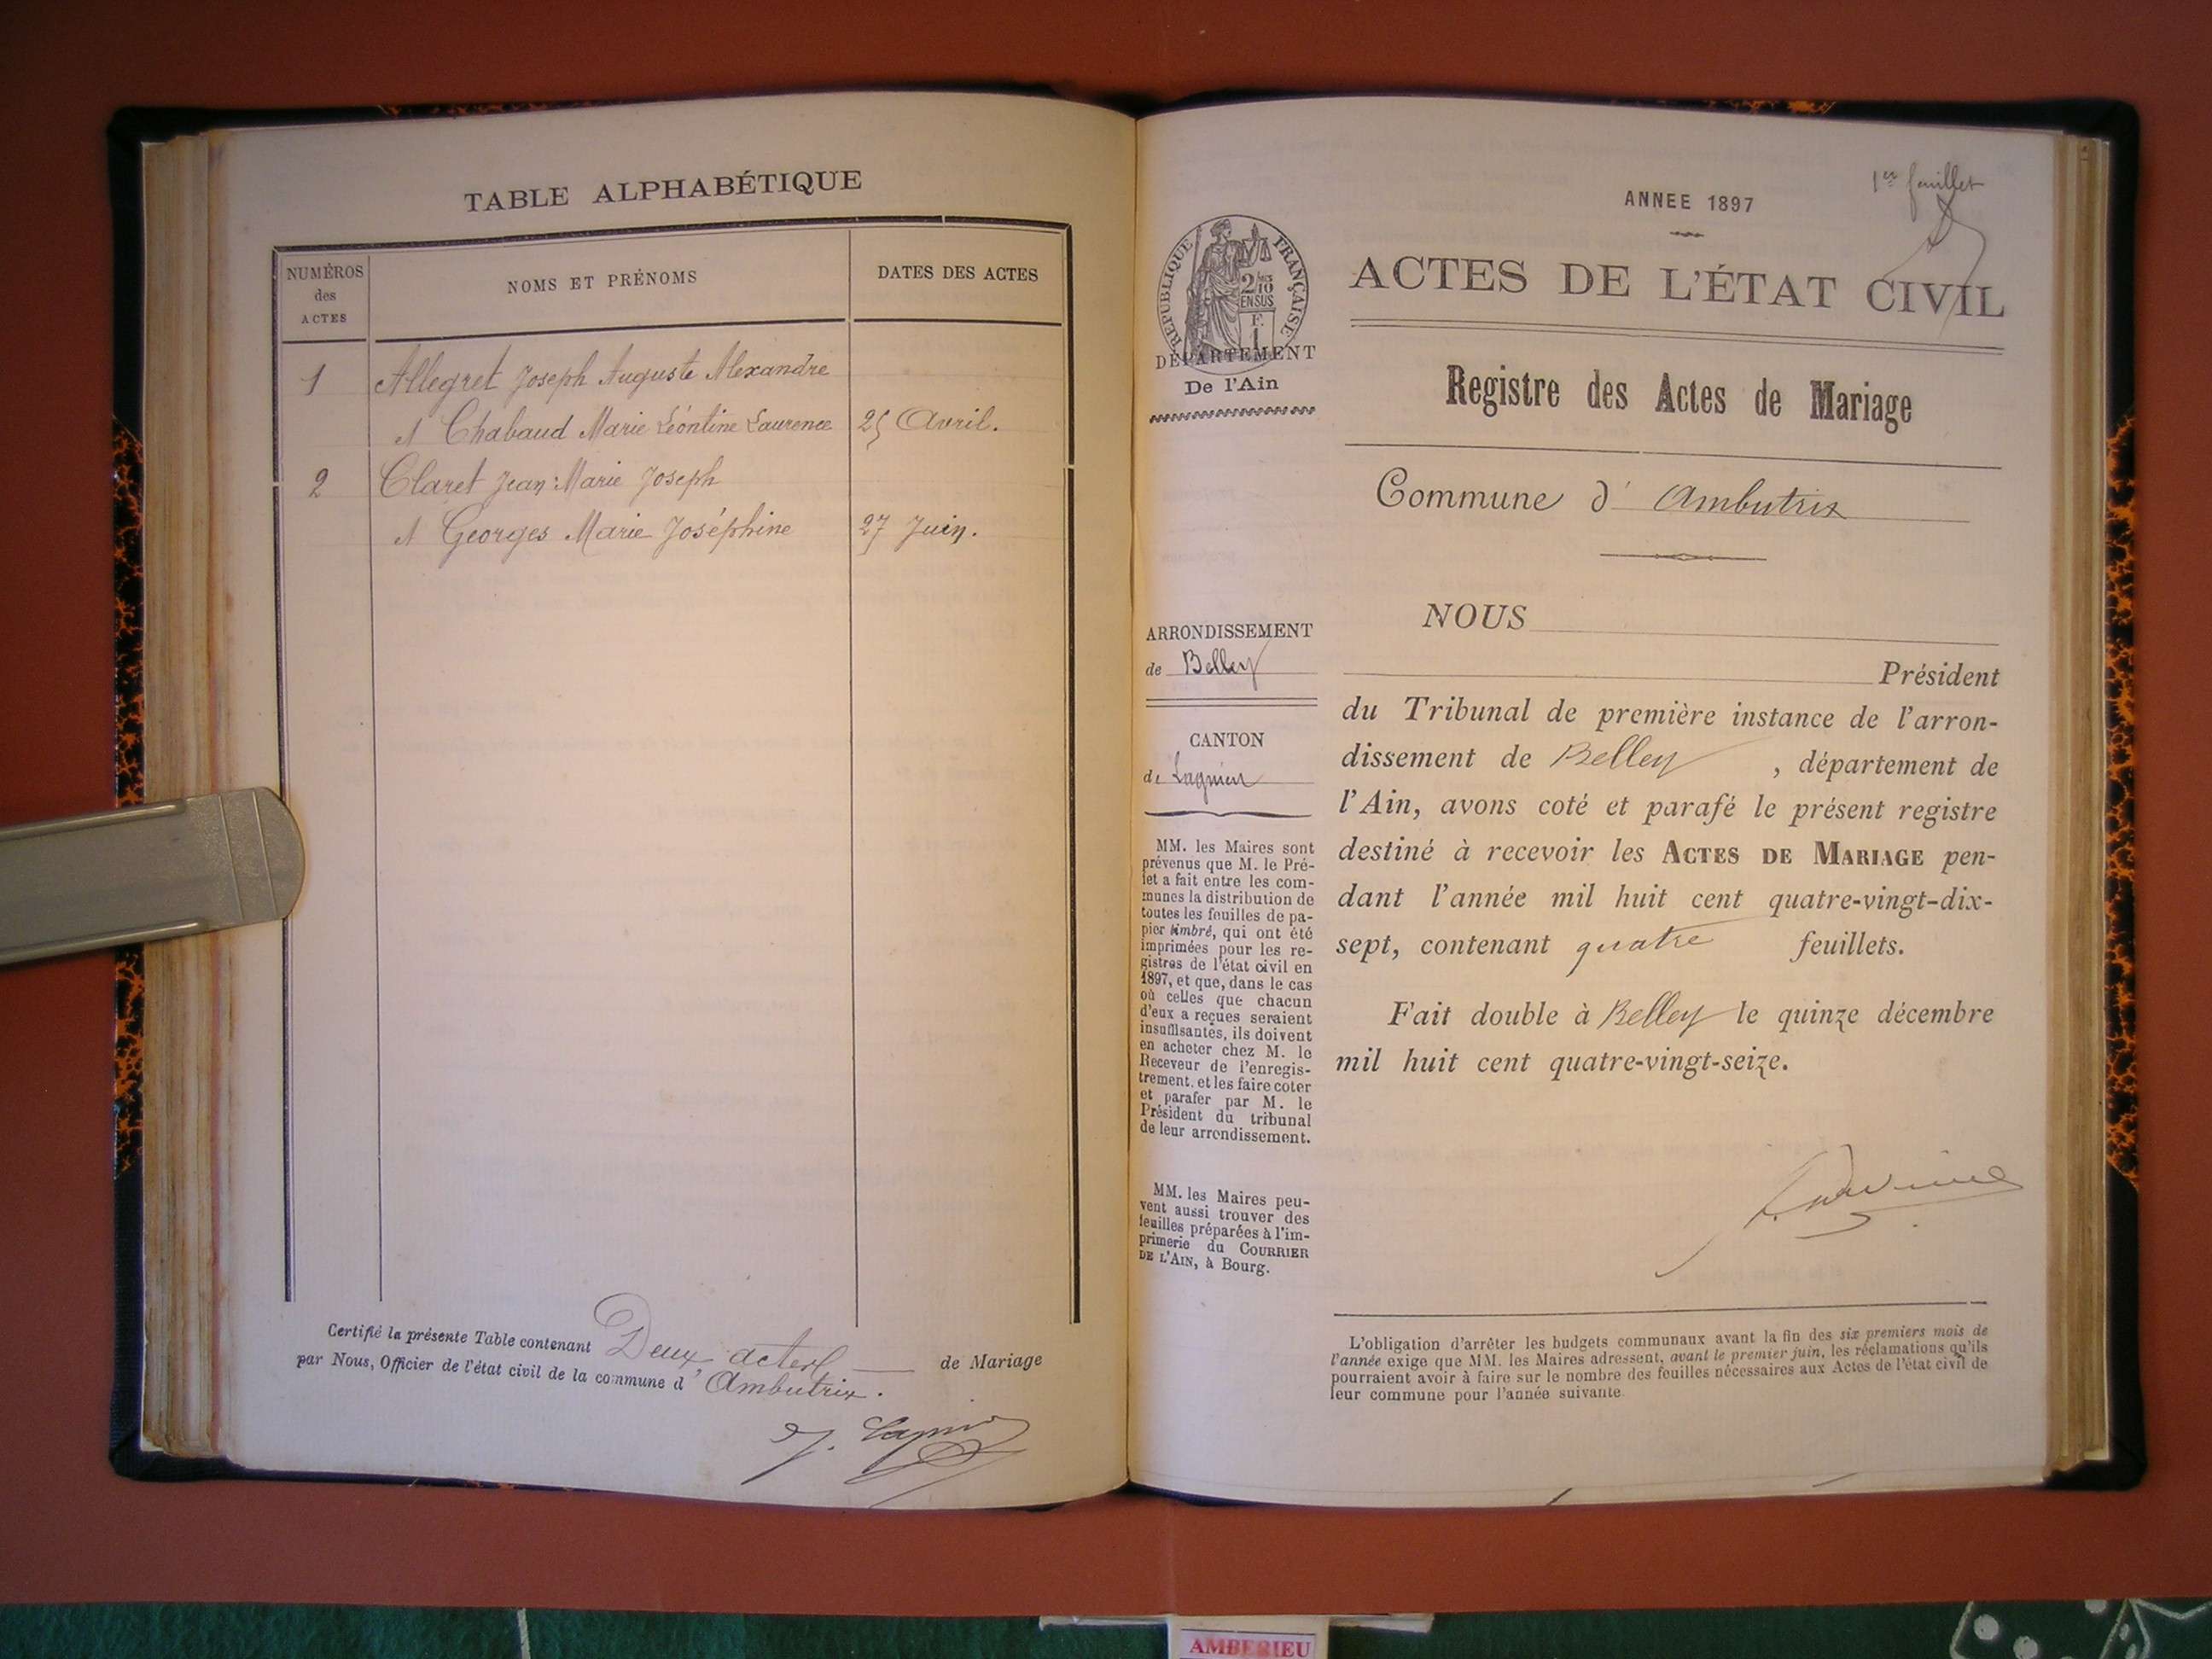 TABLE ALPHABÉTIQUE
NUMÉROS
des
ACTES
NOMS ET PRÉNOMS
DATES DES ACTES
1 Allegret Joseph Auguste Alexandre
et Chabaud Marie Léontine Laurence 25 Avril.
2 Claret Jean-Marie Joseph
et Georges Marie Joséphine 27 Juin.
Certifié la présente Table contenant Deux actes de Mariage
par Nous, Officier de l'état civil de la commune d'Ambutrix.
1er feuillet
ANNEE 1897
REPUBLIQUE FRANÇAISE
2/10
EN SUS
F.
1
DÉPARTEMENT
De l'Ain
ACTES DE L'ÉTAT CIVIL
Registre des Actes de Mariage
Commune d' Ambutrix
ARRONDISSEMENT
de Belley
CANTON
de Lagnieu
MM. les Maires sont
prévenus que M. le Pré-
fet a fait entre les com-
munes la distribution de
toutes les feuilles de pa-
pier timbré, qui ont été
imprimées pour les re-
gistres de l'état civil en
1897, et que, dans le cas
où celles que chacun
d'eux a reçues seraient
insuffisantes, ils doivent
en acheter chez M. le
Receveur de l'enregis-
trement, et les faire coter
et parafer par M. le
Président du tribunal
de leur arrondissement.
MM. les Maires peu-
vent aussi trouver des
feuilles préparées à l'im-
primerie du COURRIER
DE L'AIN, à Bourg.
NOUS
Président
du Tribunal de première instance de l'arron-
dissement de Belley , département de
l'Ain, avons coté et parafé le présent registre
destiné à recevoir les ACTES DE MARIAGE pen-
dant l'année mil huit cent quatre-vingt-dix-
sept, contenant quatre feuillets.
Fait double à Belley le quinze décembre
mil huit cent quatre-vingt-seize.
L'obligation d'arrêter les budgets communaux avant la fin des six premiers mois de
l'année exige que MM. les Maires adressent, avant le premier juin, les réclamations qu'ils
pourraient avoir à faire sur le nombre des feuilles nécessaires aux Actes de l'état civil de
leur commune pour l'année suivante.
AMBERIEU